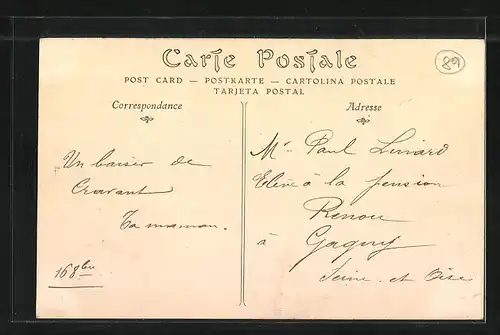 Carte Postale
89
POST CARD — POSTKARTE — CARTOLINA POSTALE
TARJETA POSTAL
Correspondance
Adresse
Un baiser de
Cravant
Ta maman.
16 8bre
Mr Paul Linard
Elève à la pension
Renou
à Gagny
Seine et Oise